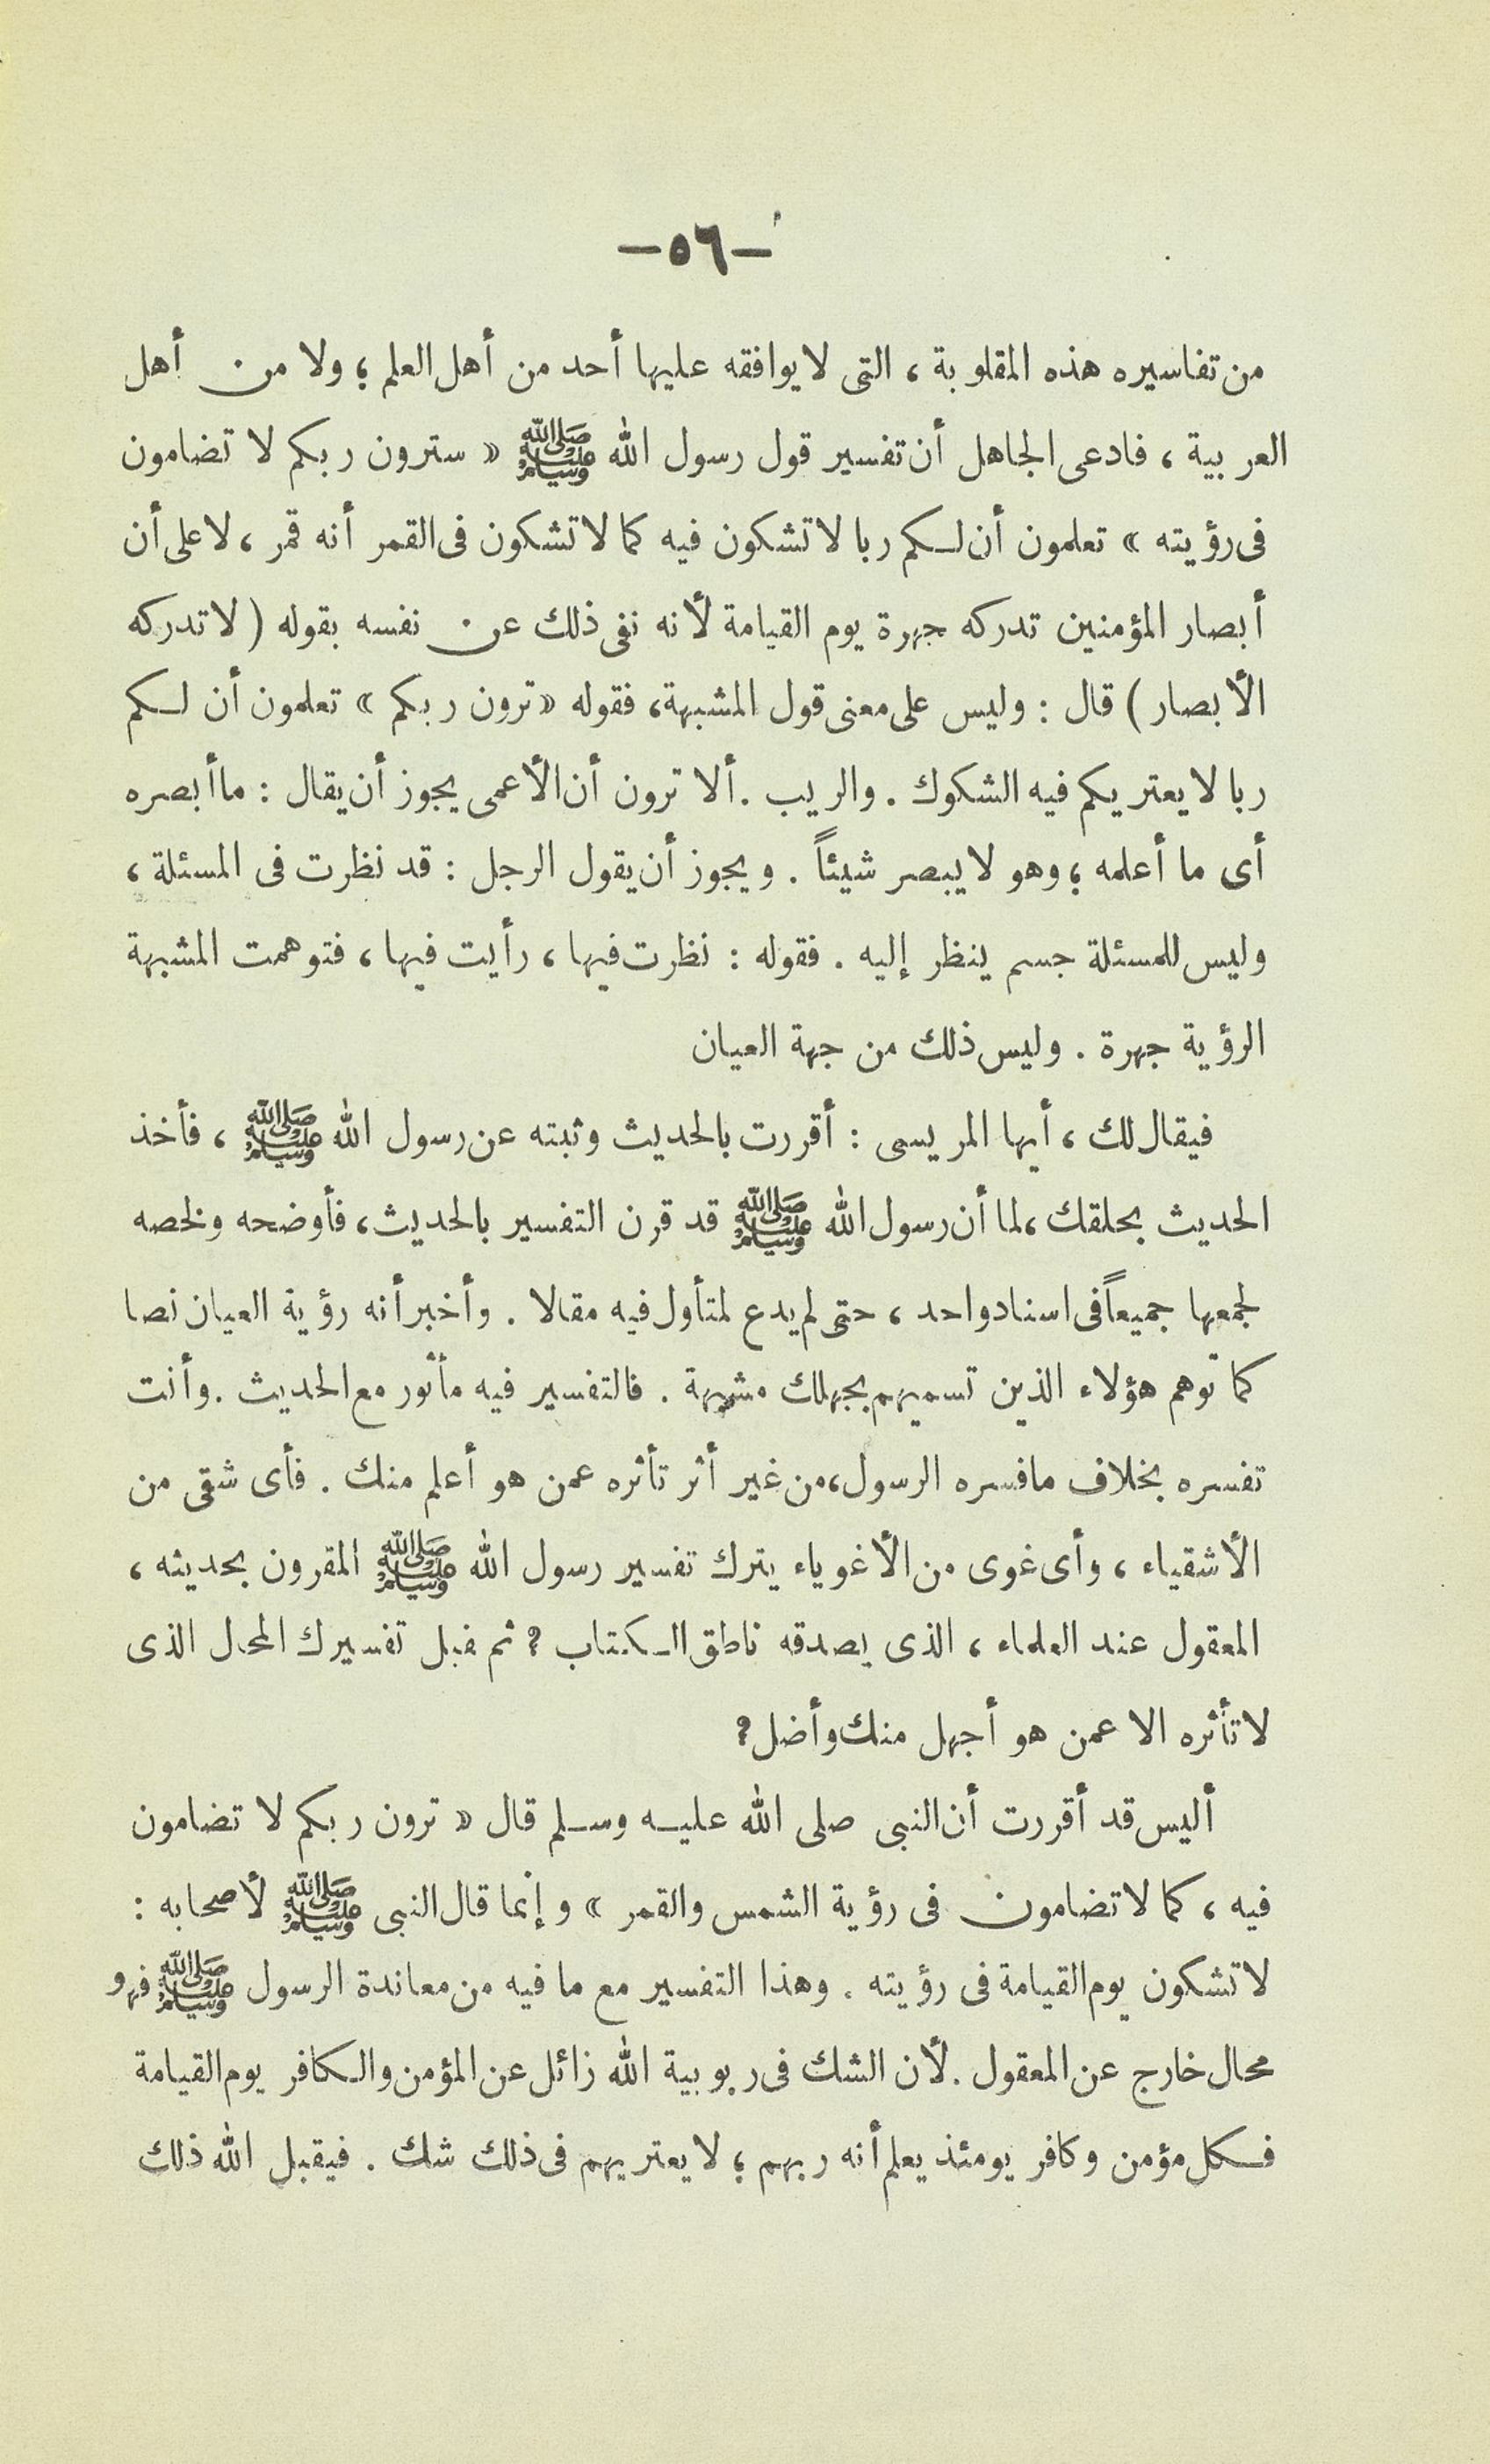 —٥٦—
من تفاسيره هذه المقلوبة ، التى لا يوافقه عليها أحد من أهل العلم ؛ ولا من أهل
العربية ، فادعى الجاهل أن تفسير قول رسول الله ﷺ « سترون ربكم لا تضامون
فى رؤيته » تعلمون أن لكم ربا لا تشكون فيه كما لا تشكون فى القمر أنه قمر ، لا على أن
أبصار المؤمنين تدركه جهرة يوم القيامة لأنه نفى ذلك عن نفسه بقوله ( لا تدركه
الأبصار ) قال : وليس على معنى قول المشبهة ، فقوله « ترون ربكم » تعلمون أن لكم
ربا لا يعتريكم فيه الشكوك . والريب . ألا ترون أن الأعمى يجوز أن يقال : ما أبصره
أى ما أعلمه ؛ وهو لا يبصر شيئاً . ويجوز أن يقول الرجل : قد نظرت فى المسئلة ،
وليس للمسئلة جسم ينظر إليه . فقوله : نظرت فيها ، رأيت فيها ، فتوهمت المشبهة
الرؤية جهرة . وليس ذلك من جهة العيان
فيقال لك ، أيها المريسى : أقررت بالحديث وثبته عن رسول الله ﷺ ، فأخذ
الحديث بحلقك ، لما أن رسول الله ﷺ قد قرن التفسير بالحديث ، فأوضحه ولخصه
لجمعها جميعاً فى اسناد واحد ، حتى لم يدع لمتأول فيه مقالا . وأخبر أنه رؤية العيان نصا
كما توهم هؤلاء الذين تسميهم بجهلك مشبهة . فالتفسير فيه مأثور مع الحديث . وأنت
تفسره بخلاف ما فسره الرسول ، من غير أثر تأثره عمن هو أعلم منك . فأى شقى من
الأشقياء ، وأى غوى من الأغوياء يترك تفسير رسول الله ﷺ المقرون بحديثه ،
المعقول عند العلماء ، الذى يصدقه ناطق الكتاب ? ثم يقبل تفسيرك المحال الذى
لا تأثره الا عمن هو أجهل منك وأضل ?
أليس قد أقررت أن النبى صلى الله عليه وسلم قال « ترون ربكم لا تضامون
فيه ، كما لا تضامون فى رؤية الشمس والقمر » وإنما قال النبى ﷺ لأصحابه :
لا تشكون يوم القيامة فى رؤيته . وهذا التفسير مع ما فيه من معاندة الرسول ﷺ فهو
محال خارج عن المعقول . لأن الشك فى ربوبية الله زائل عن المؤمن والكافر يوم القيامة
فكل مؤمن وكافر يومئذ يعلم أنه ربهم ؛ لا يعتريهم فى ذلك شك . فيقبل الله ذلك